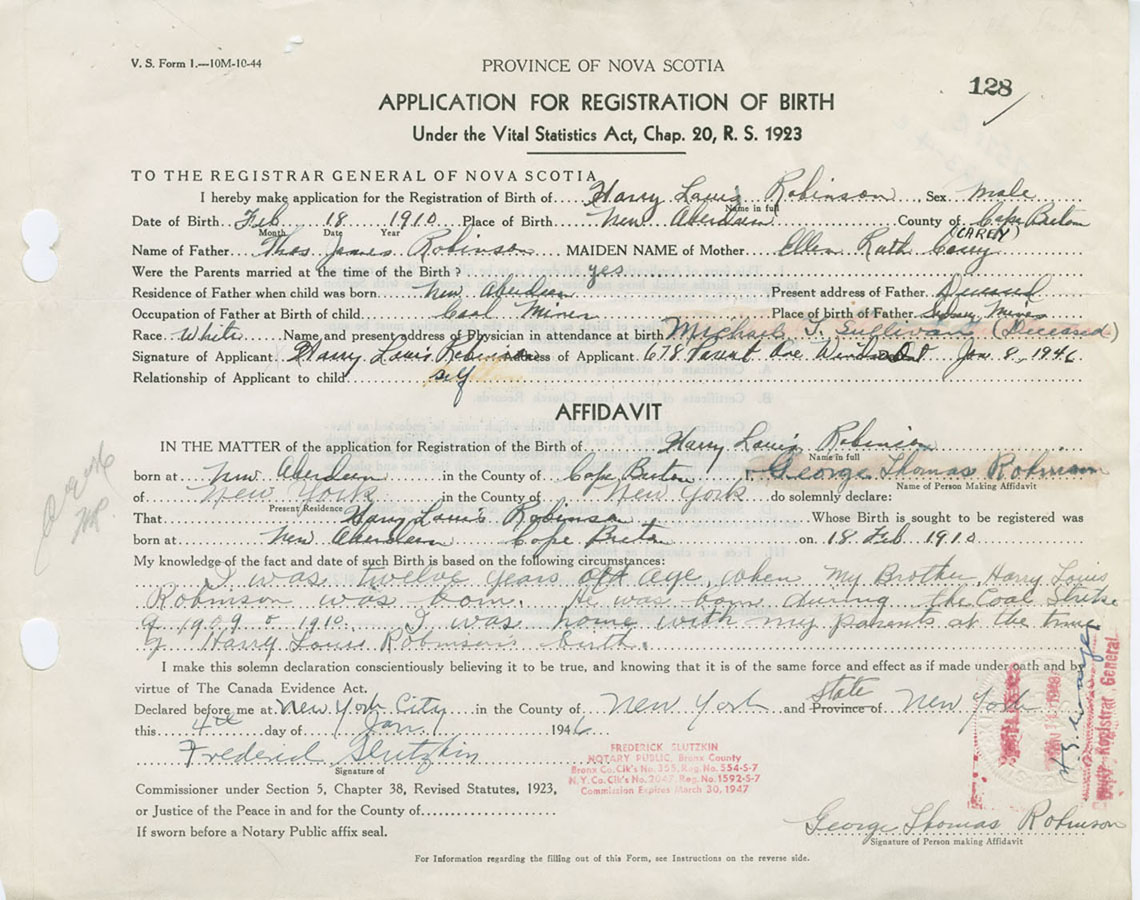 V. S. Form 1.—10M-10-44
PROVINCE OF NOVA SCOTIA
128
APPLICATION FOR REGISTRATION OF BIRTH
Under the Vital Statistics Act, Chap. 20, R. S. 1923
TO THE REGISTRAR GENERAL OF NOVA SCOTIA
I hereby make application for the Registration of Birth of Harry Louis Robinson Sex male
Name in full
Date of Birth Feb 18 1910 Place of Birth New Aberdeen County of Cape Breton
Month Date Year
(CAREY)
Name of Father Thos James Robinson MAIDEN NAME of Mother Ellen Ruth Carey
Were the Parents married at the time of the Birth? yes
Residence of Father when child was born New Aberdeen Present address of Father Deceased
Occupation of Father at Birth of child Coal Miner Place of birth of Father Sydney Mines
Race White Name and present address of Physician in attendance at birth Michael T. Sullivan (Deceased)
Signature of Applicant Harry Louis Robinson Address of Applicant 678 Parent Ave Windsor Ont Jan. 8, 1946
Relationship of Applicant to child self
AFFIDAVIT
IN THE MATTER of the application for Registration of the Birth of Harry Louis Robinson
Name in full
born at New Aberdeen in the County of Cape Breton I, George Thomas Robinson
Name of Person Making Affidavit
of New York in the County of New York do solemnly declare:
Present Residence
That Harry Louis Robinson Whose Birth is sought to be registered was
born at New Aberdeen Cape Breton on 18 Feb 1910
My knowledge of the fact and date of such Birth is based on the following circumstances:
I was twelve years of age, when my Brother Harry Louis
Robinson was born. He was born during the Coal Strike
of 1909 & 1910. I was home with my parents at the time
of Harry Louis Robinson's birth.
I make this solemn declaration conscientiously believing it to be true, and knowing that it is of the same force and effect as if made under oath and by
virtue of The Canada Evidence Act.
Declared before me at New York City in the County of New York and State Province of New York
this 4th day of Jan. 1946
Frederick Slutzkin
Signature of
FREDERICK SLUTZKIN
NOTARY PUBLIC, Bronx County
Bronx Co. Clk's No. 355, Reg. No. 554-S-7
N. Y. Co. Clk's No. 2047, Reg. No. 1592-S-7
Commission Expires March 30, 1947
Commissioner under Section 5, Chapter 38, Revised Statutes, 1923,
or Justice of the Peace in and for the County of
If sworn before a Notary Public affix seal.
George Thomas Robinson
Signature of Person making Affidavit
Deputy Registrar General
For Information regarding the filling out of this Form, see Instructions on the reverse side.